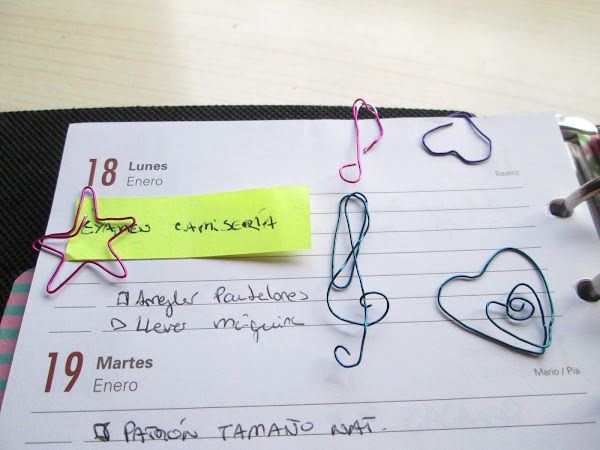 18 Lunes
Enero
Beatriz
EXAMEN CAMISERÍA
Arreglar Pantalones
Llevar Máquina
19 Martes
Enero
Mario / Pía
PATRÓN TAMAÑO NAT.